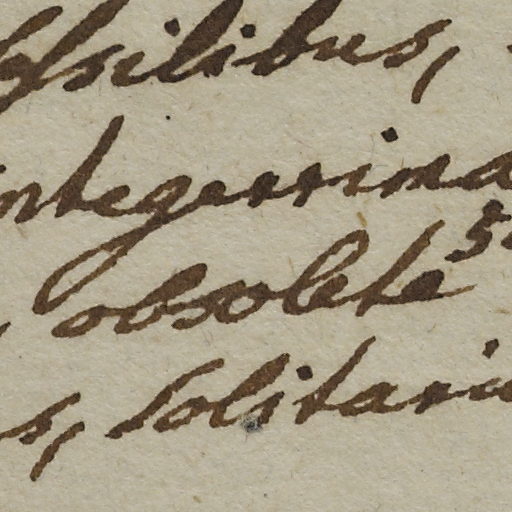 ſsilibus,
integerrima
, obsolete 5
s, solitari